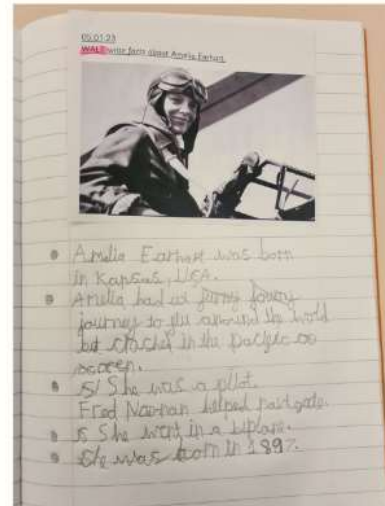 05.01.23
WALT write facts about Amelia Earhart.
Amelia Earhart was born
in Kansus, USA.
Amelia had
journey to fly around the world
but crached in the pacific
She was a pilot.
Fred helped
She went in a biplane.
She was born in 1897.